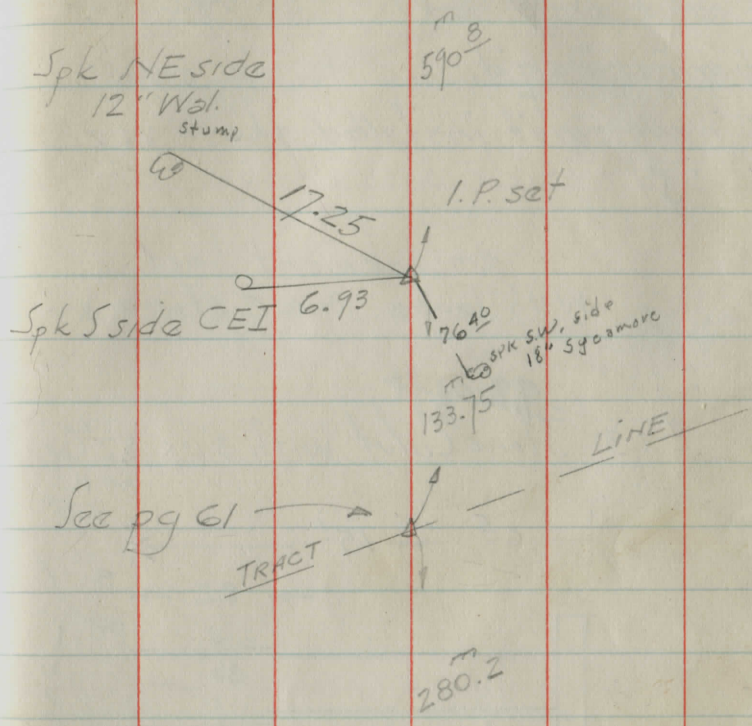 590 8
Spk NE side
12" Wal.
stump
17.25
I.P. set
6.93
Spk S side CEI
76 40
SPK S.W. side
18" Sycamore
133.75
LINE
See pg 61
TRACT
280.2